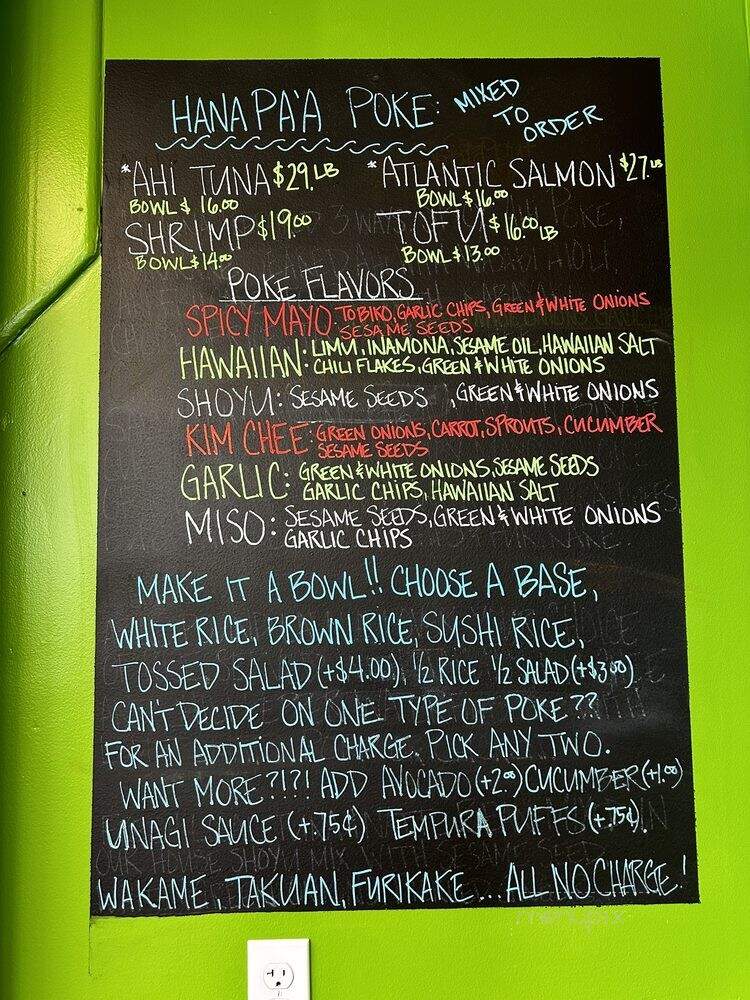 HANA PA'A POKE: MIXED TO ORDER
*AHI TUNA $29. LB *ATLANTIC SALMON $27. LB
BOWL $16.00 BOWL $16.00
SHRIMP $19.00 TOFU $16.00 LB
BOWL $14.00 BOWL $13.00
POKE FLAVORS
SPICY MAYO: TOBIKO, GARLIC CHIPS, GREEN & WHITE ONIONS
SESAME SEEDS
HAWAIIAN: LIMU, INAMONA, SESAME OIL, HAWAIIAN SALT
CHILI FLAKES, GREEN & WHITE ONIONS
SHOYU: SESAME SEEDS, GREEN & WHITE ONIONS
KIM CHEE: GREEN ONIONS, CARROT, SPROUTS, CUCUMBER
SESAME SEEDS
GARLIC: GREEN & WHITE ONIONS, SESAME SEEDS
GARLIC CHIPS, HAWAIIAN SALT
MISO: SESAME SEEDS, GREEN & WHITE ONIONS
GARLIC CHIPS
MAKE IT A BOWL!! CHOOSE A BASE,
WHITE RICE, BROWN RICE, SUSHI RICE,
TOSSED SALAD (+$4.00), 1/2 RICE 1/2 SALAD (+$3.00)
CAN'T DECIDE ON ONE TYPE OF POKE??
FOR AN ADDITIONAL CHARGE. PICK ANY TWO.
WANT MORE?!?! ADD AVOCADO (+2.00) CUCUMBER (+1.00)
UNAGI SAUCE (+.75¢) TEMPURA PUFFS (+.75¢).
WAKAME, TAKUAN, FURIKAKE... ALL NO CHARGE!